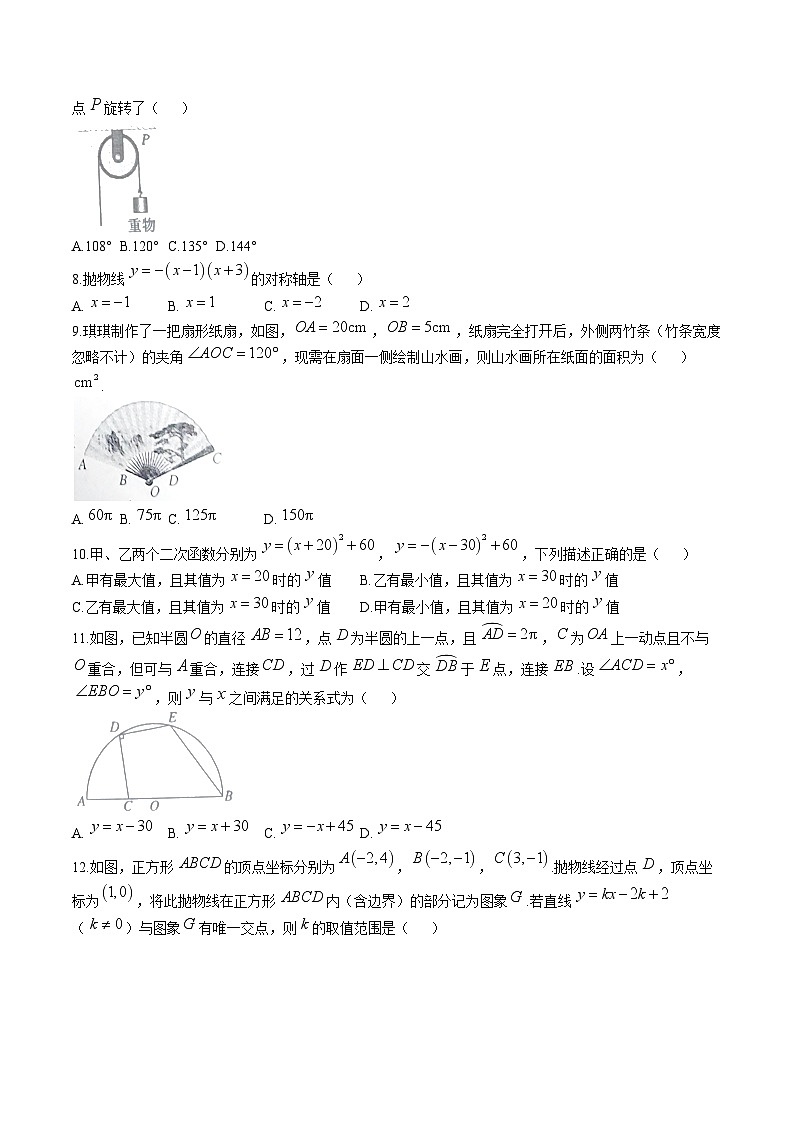 点P旋转了（ ）
P
重物
A.108° B.120° C.135° D.144°
8.抛物线y=-(x-1)(x+3)的对称轴是（ ）
A. x=-1 B. x=1 C. x=-2 D. x=2
9.琪琪制作了一把扇形纸扇，如图，OA=20cm，OB=5cm，纸扇完全打开后，外侧两竹条（竹条宽度
忽略不计）的夹角∠AOC=120°，现需在扇面一侧绘制山水画，则山水画所在纸面的面积为（ ）
cm².
A B O D C
A. 60π B. 75π C. 125π D. 150π
10.甲、乙两个二次函数分别为y=(x+20)²+60，y=-(x-30)²+60，下列描述正确的是（ ）
A.甲有最大值，且其值为x=20时的y值 B.乙有最小值，且其值为x=30时的y值
C.乙有最大值，且其值为x=30时的y值 D.甲有最小值，且其值为x=20时的y值
11.如图，已知半圆O的直径AB=12，点D为半圆的上一点，且⌒AD=2π，C为OA上一动点且不与
O重合，但可与A重合，连接CD，过D作ED⊥CD交⌒DB于E点，连接EB.设∠ACD=x°，
∠EBO=y°，则y与x之间满足的关系式为（ ）
D E
A C O B
A. y=x-30 B. y=x+30 C. y=-x+45 D. y=x-45
12.如图，正方形ABCD的顶点坐标分别为A(-2,4)，B(-2,-1)，C(3,-1).抛物线经过点D，顶点坐
标为(1,0)，将此抛物线在正方形ABCD内（含边界）的部分记为图象G.若直线y=kx-2k+2
（k≠0）与图象G有唯一交点，则k的取值范围是（ ）